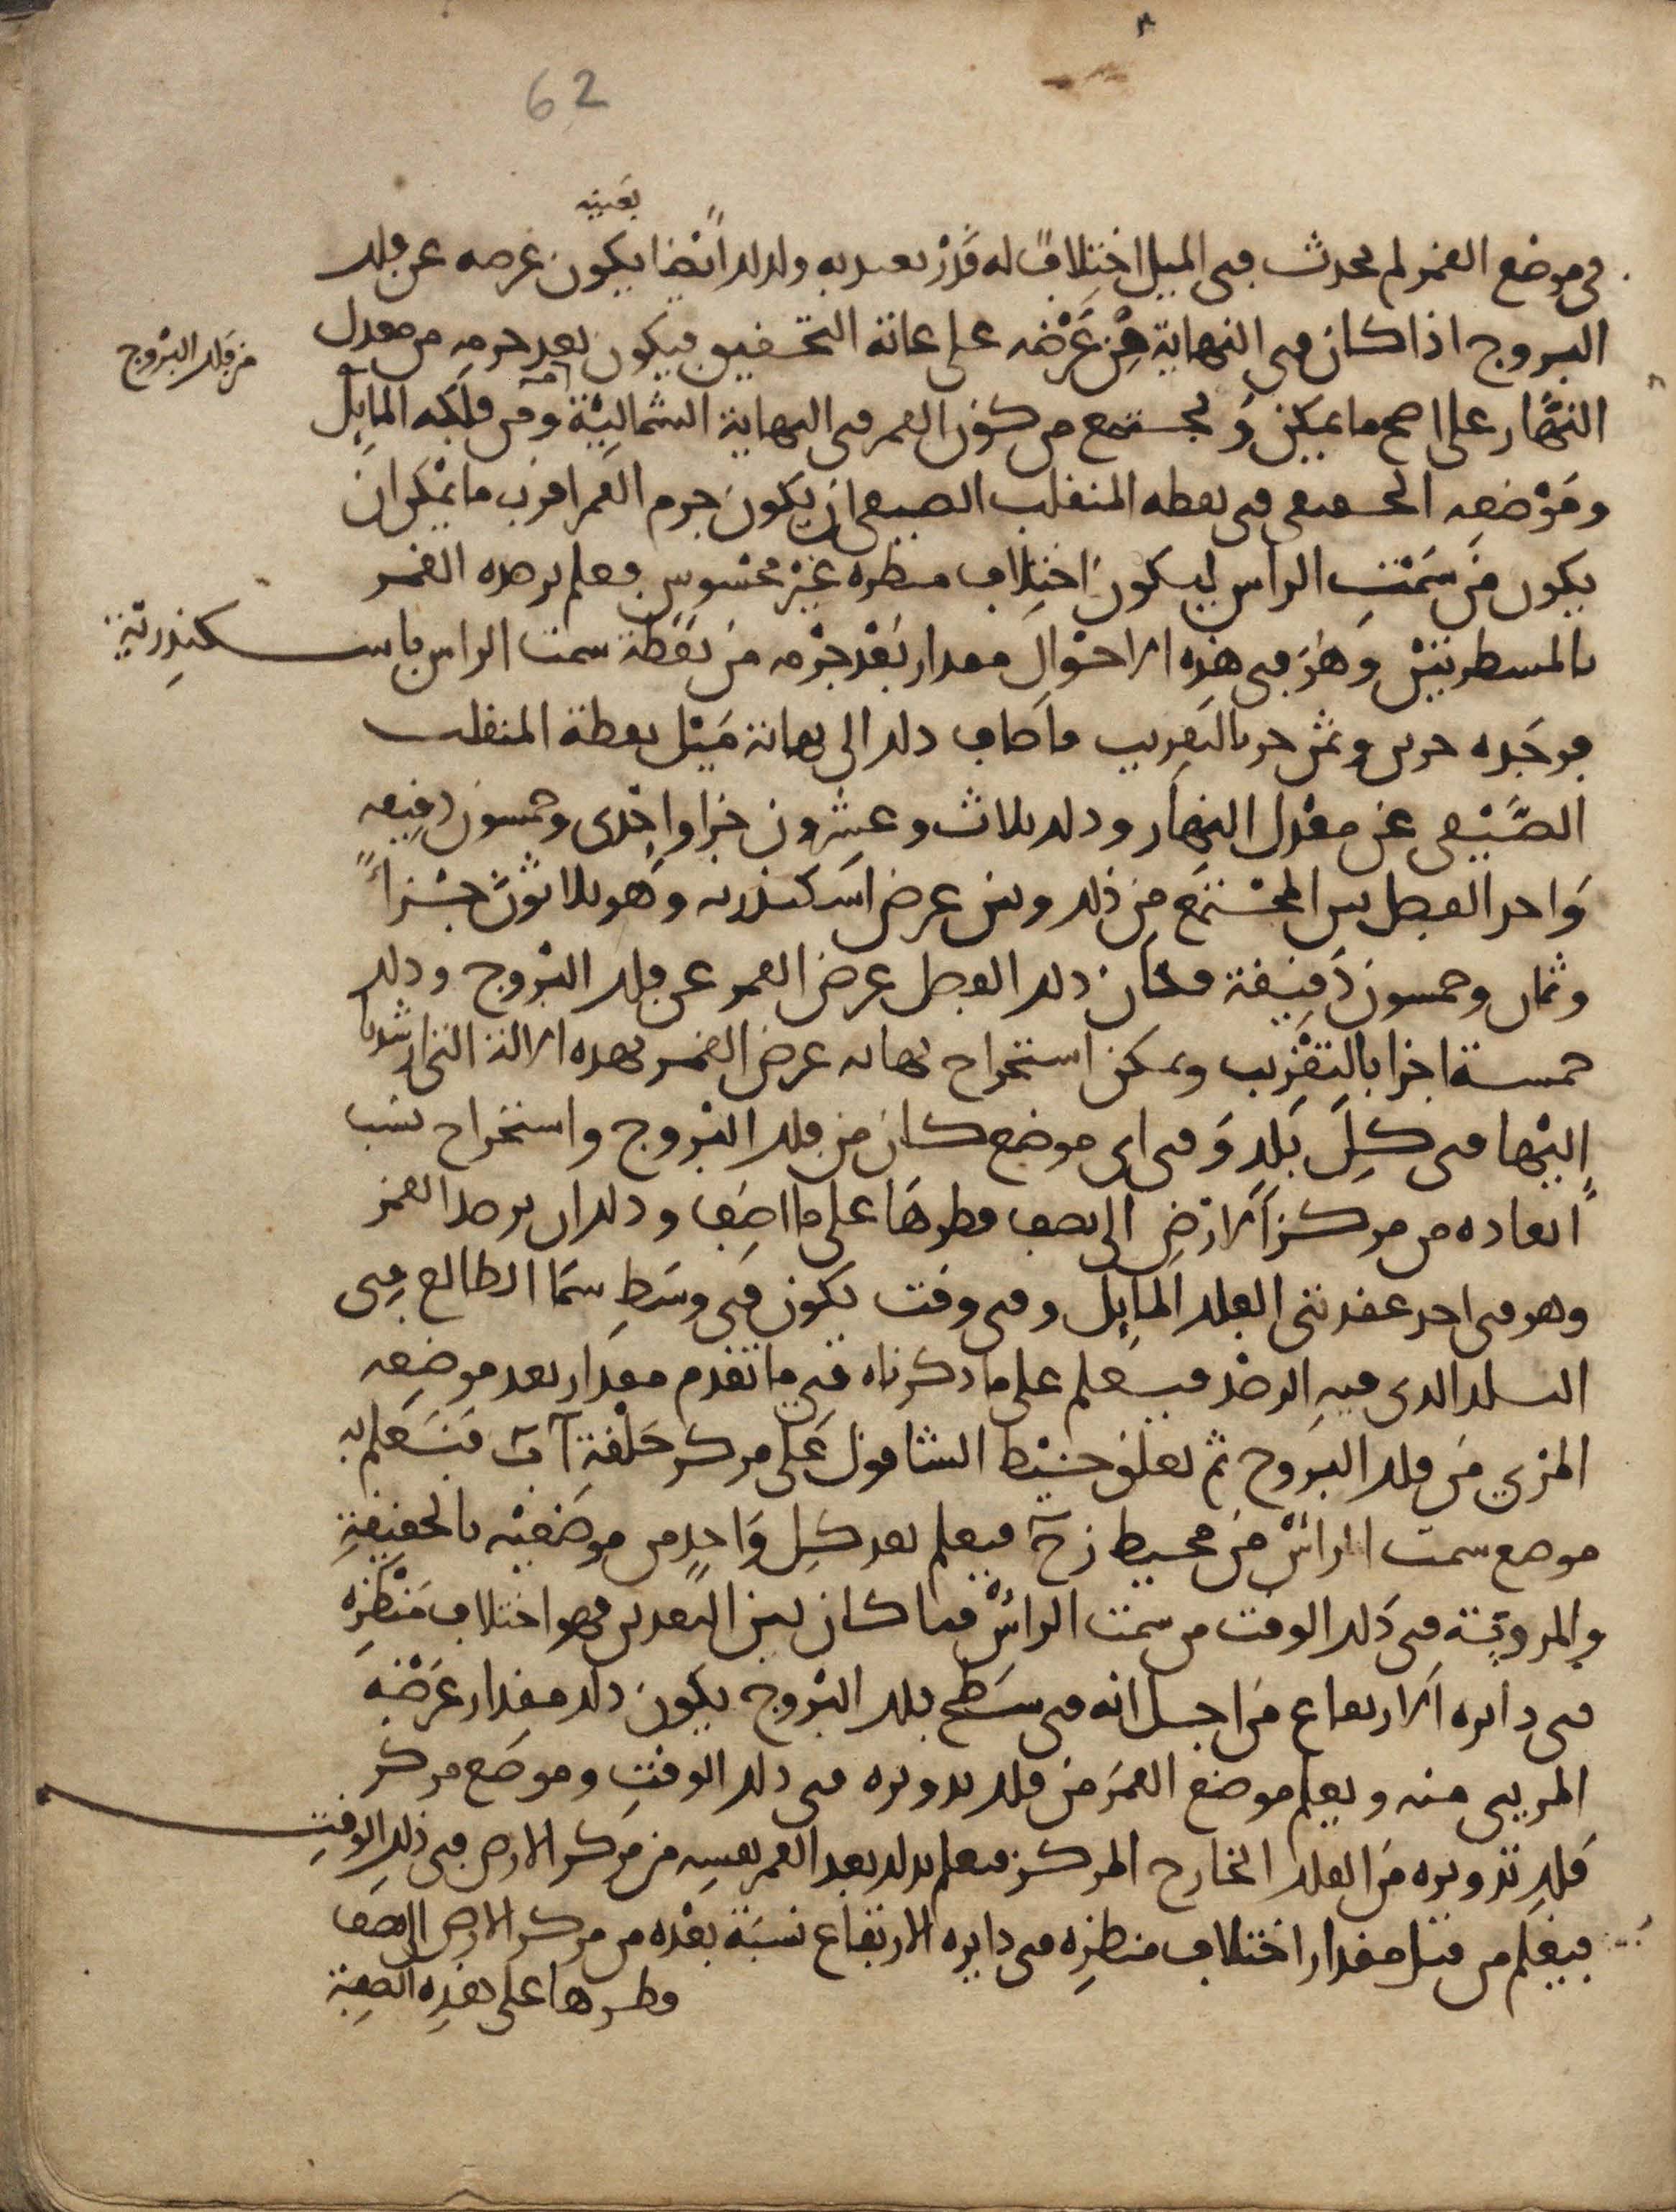 62
بعينه
في موضع القمر لم يحدث في الميل اختلاف له قدر يعبد به ولذلك ايضا يكون عرضه عن فلك
البروج اذا كان في النهاية من عرضه على غاية التحقيق فيكون بعد جرمه من معدل
من فلك البروج
النهار على اصح ما يمكن و يجتمع من كون القمر في النهاية الشمالية من فلكه المايل
وموضعه الحقيقي في نقطة المنقلب الصيفي ان يكون جرم القمر اقرب ما يمكن ان
يكون من سمت الراس ليكون اختلاف منظره غير محسوس فعلم برصده القمر
بالمسطرتين وهو في هذه الاحوال مقدار بعد جرمه من نقطة سمت الراس باسكندرية
فوجده جزين وثمن جز بالتقريب فاضاف ذلك الى نهاية ميل نقطة المنقلب
الصيفي عن معدل النهار وذلك ثلاث وعشرون جزا واحدى وخمسون دقيقه
واخذ الفضل بين المجتمع من ذلك وبين عرض اسكندرية وهو ثلاثون جزءا
وثمان وخمسون دقيقة فكان ذلك الفضل عرض القمر عن فلك البروج وذلك
خمسة اجزا بالتقريب ويمكن استخراج نهاية عرض القمر بهذه الالة التي ارشدنا
اليها في كل بلد وفي اي موضع كان من فلك البروج واستخراج نسب
ابعاده من مركز الارض الى نصف قطرها على ما اصف وذلك ان يرصد القمر
وهو في احد عقدتي الفلك المايل وفي وقت يكون في وسط سما الطالع في
البلد الذي فيه الرصد فيعلم على ما ذكرناه في ما تقدم مقدار بعد موضعه
المري من فلك البروج ثم يعلق خيط الشاقول على مركز حلقة اب فيعلم به
موضع سمت الراس من محيط زح فيعلم بعد كل واحد من موضعيه بالحقيقة
والمروية في ذلك الوقت من سمت الراس فما كان بين البعدين فهو اختلاف منظره
في دايره الارتفاع من اجل انه في سطح فلك البروج يكون ذلك مقدار عرضه
المريي منه ويعلم موضع القمر من فلك تدويره في ذلك الوقت وموضع مركز
فلك تدويره من الفلك الخارج المركز فيعلم بذلك بعد القمر نفسه من مركز الارض في ذلك الوقت
فيعلم من قبل مقدار اختلاف منظره في دايره الارتفاع نسبة بعده من مركز الارض الى نصف
قطرها على هذه الصفة